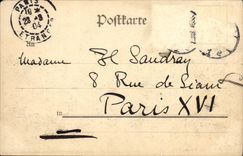 PARIS
28 -9
04
ETRANGER
Postkarte
An
Madame H Saudray
8 Rue de Siam
in Paris XVI